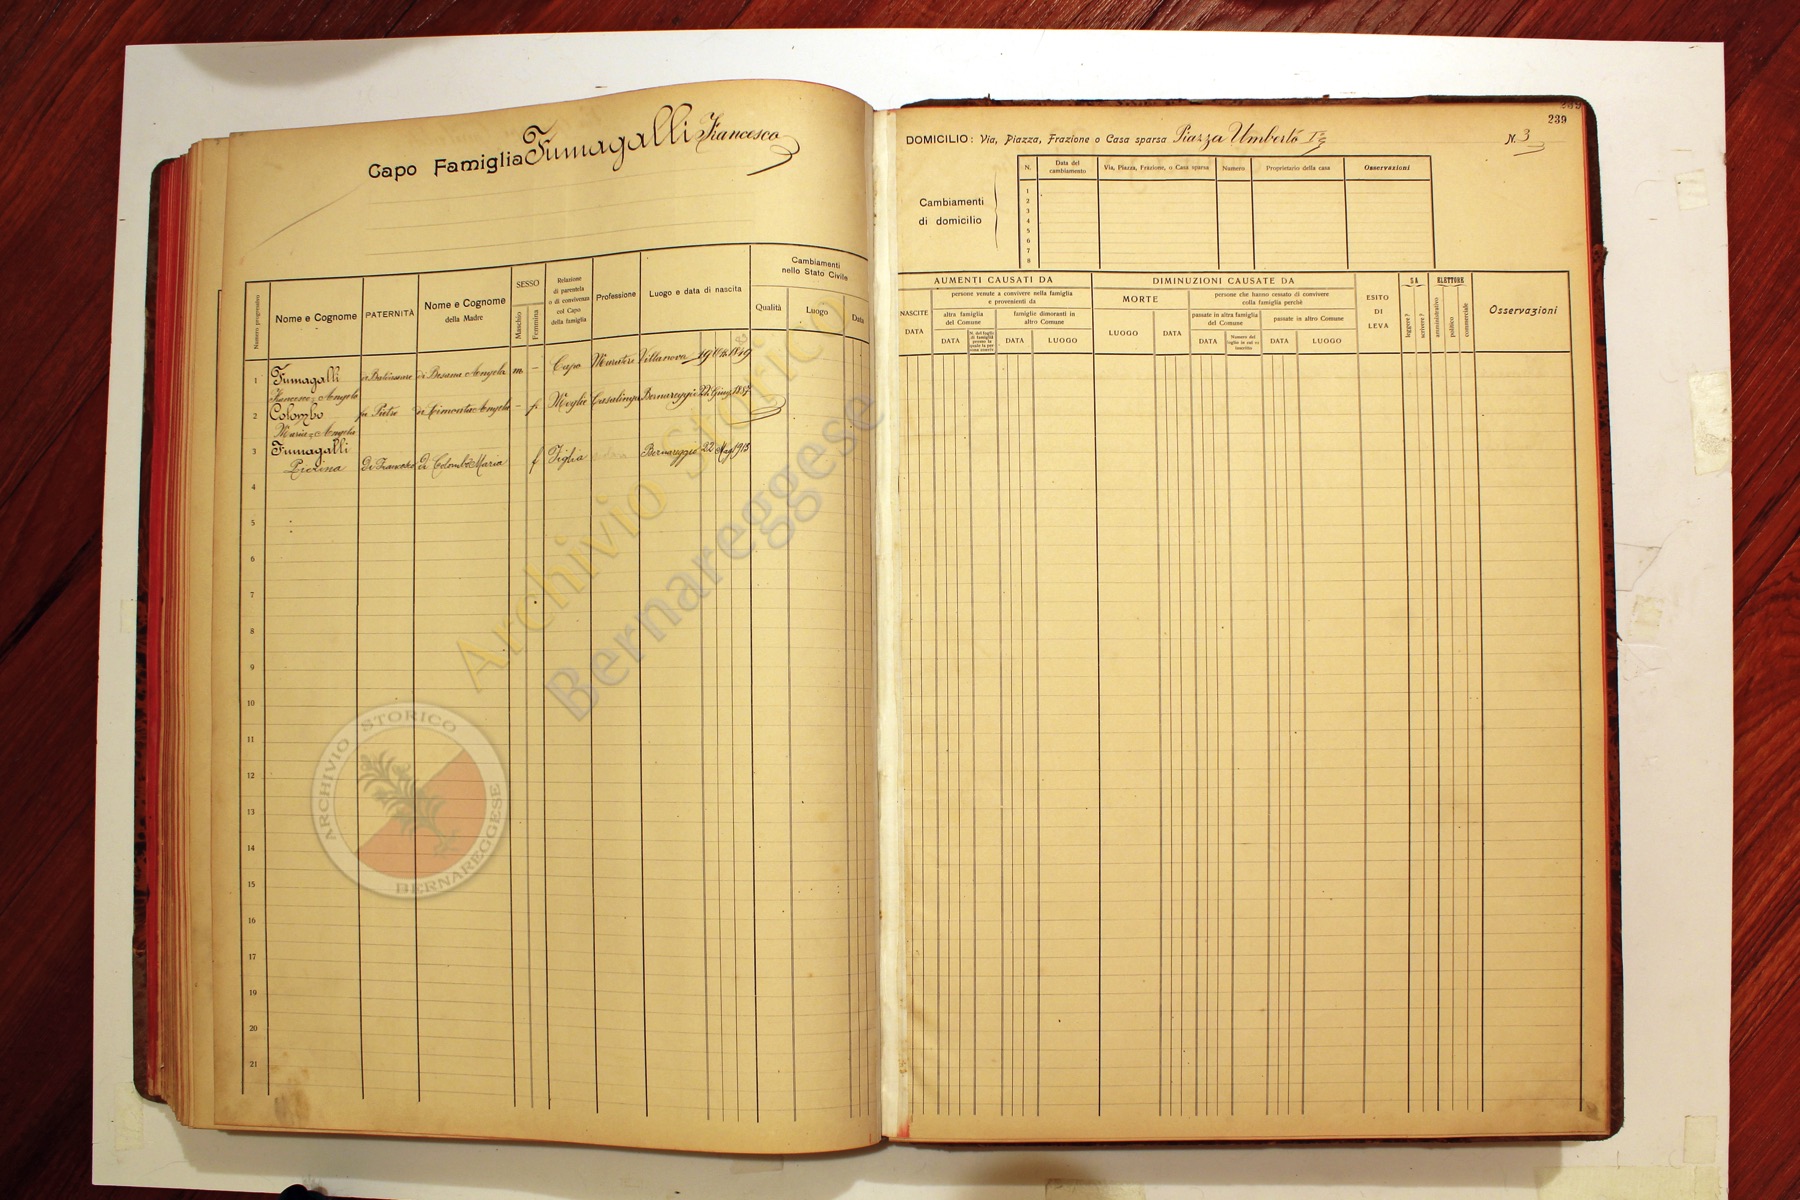 Capo Famiglia Fumagalli Francesco
239
239
DOMICILIO: Via, Piazza, Frazione o Casa sparsa Piazza Umberto Iº N. 3
Cambiamenti di domicilio
N. Data del cambiamento Via, Piazza, Frazione, o Casa sparsa Numero Proprietario della casa Osservazioni
1
2
3
4
5
6
7
8
Numero progressivo
Nome e Cognome
PATERNITÀ
Nome e Cognome della Madre
SESSO
Maschio
Femmina
Relazione di parentela o di convivenza col Capo della famiglia
Professione
Luogo e data di nascita
Cambiamenti nello Stato Civile
Qualità
Luogo
Data
1 Fumagalli di Besana Angela m — Capo Muratore Villanova 19
Francesco Angelo
2 Colombo fu Pietro Angela — f Moglie Casalinga Bernareggio 22 Giug 1887
Maria Angela
3 Fumagalli
Pierina Di Francesco di Colombo Maria f Figlia Bernareggio 22 Mag 1913
4
5
6
7
8
9
10
11
12
13
14
15
16
17
18
19
20
21
AUMENTI CAUSATI DA
NASCITE
DATA
persone venute a convivere nella famiglia e provenienti da
altra famiglia del Comune
DATA
famiglie dimoranti in altro Comune
DATA
LUOGO
DIMINUZIONI CAUSATE DA
MORTE
LUOGO
DATA
persone che hanno cessato di convivere colla famiglia perchè
passate in altra famiglia del Comune
DATA
Numero del foglio in cui è inscritto
passate in altro Comune
DATA
LUOGO
ESITO DI LEVA
SA
leggere?
scrivere?
ELETTORE
amministrativo
politico
commerciale
Osservazioni
Archivio Storico
Bernareggese
ARCHIVIO STORICO
BERNAREGGESE